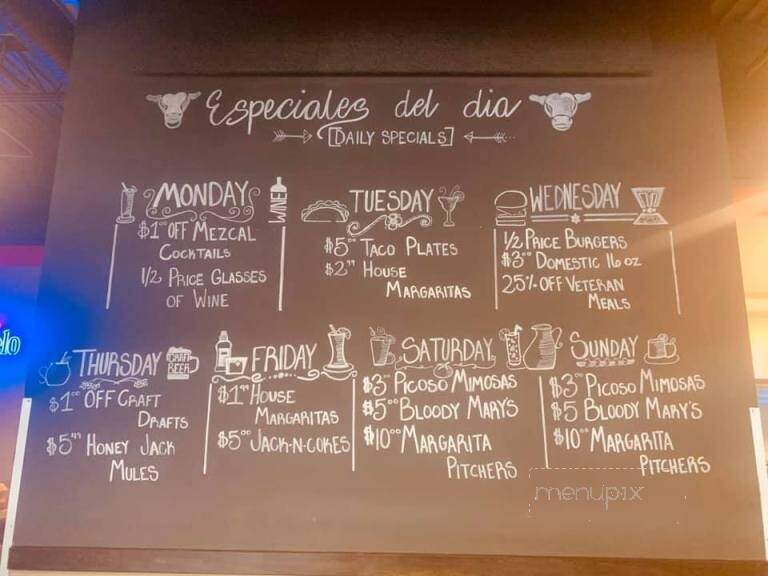 Especiales del dia
[DAILY SPECIALS]
MONDAY
WINE
$1°° OFF MEZCAL
COCKTAILS
1/2 PRICE GLASSES
OF WINE
TUESDAY
$5°° TACO PLATES
$2⁹⁹ HOUSE
MARGARITAS
WEDNESDAY
1/2 PRICE BURGERS
$3°° DOMESTIC 16 OZ
25% OFF VETERAN
MEALS
THURSDAY
CRAFT
BEER
$1°° OFF CRAFT
DRAFTS
$5⁹⁹ HONEY JACK
MULES
FRIDAY
$1⁹⁹ HOUSE
MARGARITAS
$5°° JACK-N-COKES
SATURDAY
$3°° PICOSO MIMOSAS
$5°° BLOODY MARY'S
$10°° MARGARITA
PITCHERS
SUNDAY
$3°° PICOSO MIMOSAS
$5 BLOODY MARY'S
$10°° MARGARITA
PITCHERS
menupix
elo